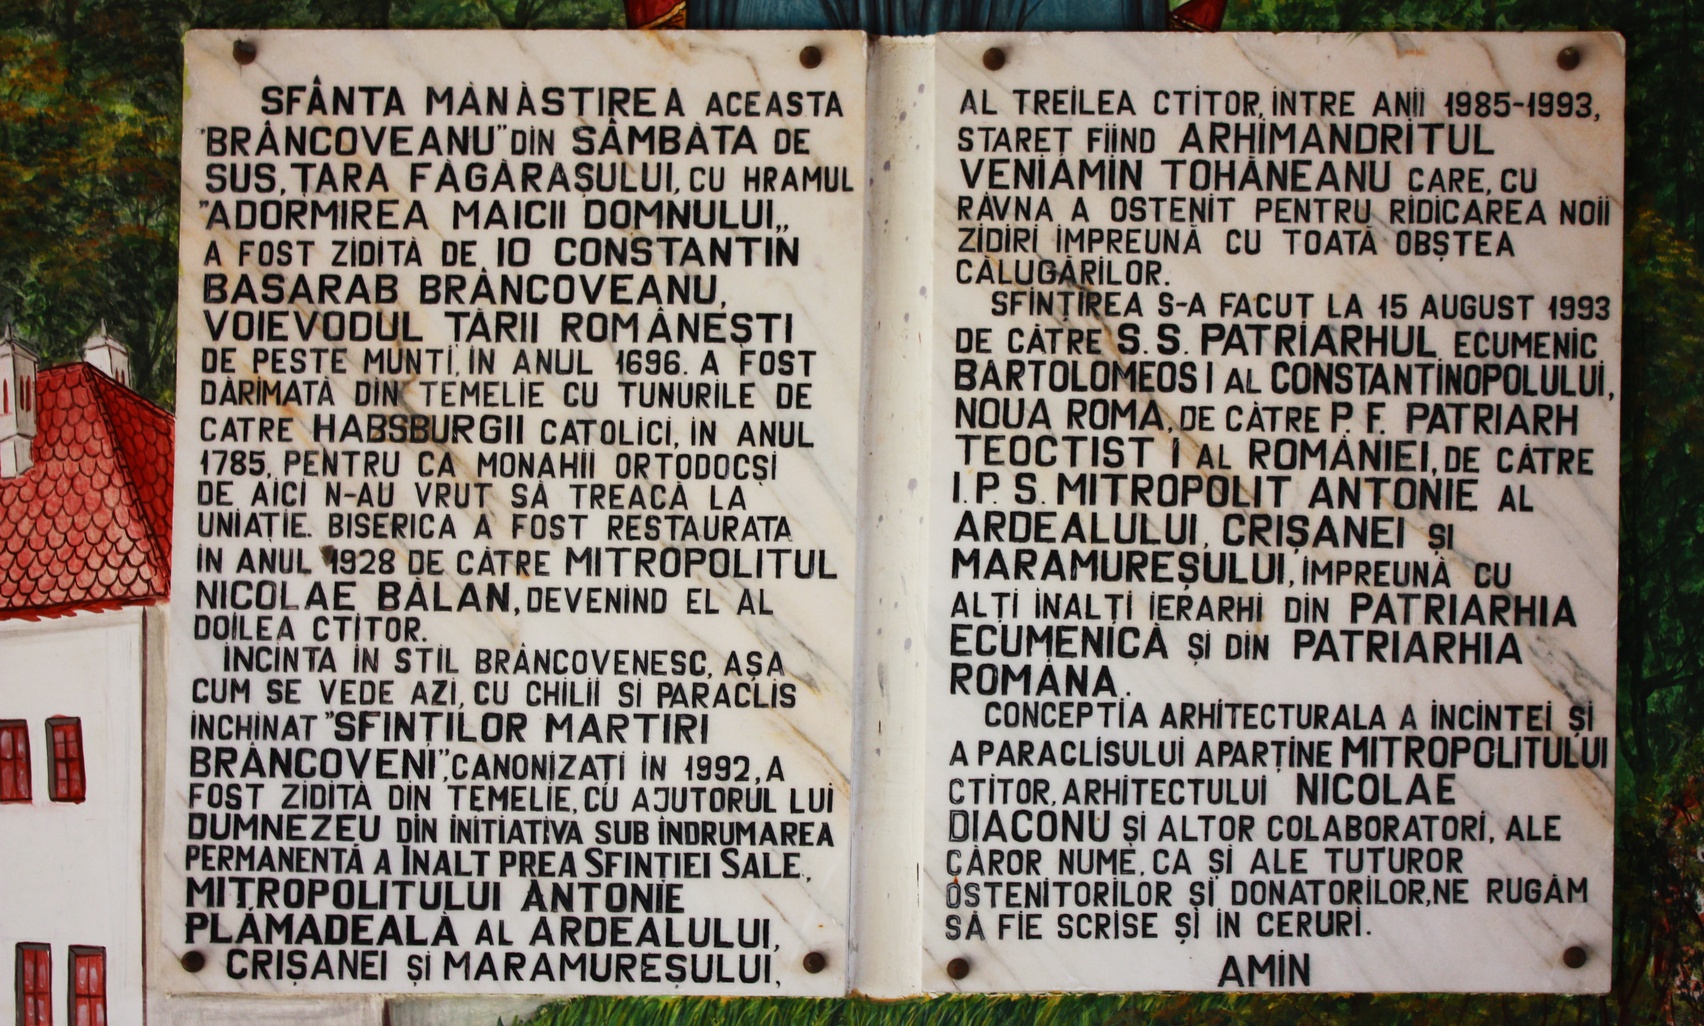 SFÂNTA MĂNĂSTIREA ACEASTA
"BRÂNCOVEANU" DIN SÂMBĂTA DE
SUS, ȚARA FĂGĂRAȘULUI, CU HRAMUL
"ADORMIREA MAICII DOMNULUI„
A FOST ZIDITĂ DE IO CONSTANTIN
BASARAB BRÂNCOVEANU,
VOIEVODUL ȚĂRII ROMÂNEȘTI
DE PESTE MUNȚI, ÎN ANUL 1696. A FOST
DĂRÎMATĂ DIN TEMELIE CU TUNURILE DE
CATRE HABSBURGII CATOLICI, ÎN ANUL
1785, PENTRU CĂ MONAHII ORTODOCȘI
DE AICI N-AU VRUT SĂ TREACĂ LA
UNIAȚIE. BISERICA A FOST RESTAURATA
ÎN ANUL 1928 DE CĂTRE MITROPOLITUL
NICOLAE BĂLAN, DEVENIND EL AL
DOILEA CTITOR.
INCINTA ÎN STIL BRÂNCOVENESC, AȘA
CUM SE VEDE AZI, CU CHILII SI PARACLIS
ÎNCHINAT "SFINȚILOR MARTIRI
BRÂNCOVENI", CANONIZAȚI ÎN 1992, A
FOST ZIDITĂ DIN TEMELIE, CU AJUTORUL LUI
DUMNEZEU DIN INIȚIATIVA SUB ÎNDRUMAREA
PERMANENTĂ A ÎNALT PREA SFINȚIEI SALE,
MITROPOLITULUI ANTONIE
PLĂMADEALĂ AL ARDEALULUI,
CRIȘANEI ȘI MARAMUREȘULUI,
AL TREILEA CTITOR, ÎNTRE ANII 1985-1993,
STAREȚ FIIND ARHIMANDRITUL
VENIAMIN TOHĂNEANU CARE, CU
RÂVNĂ A OSTENIT PENTRU RIDICAREA NOII
ZIDIRI ÎMPREUNĂ CU TOATĂ OBȘTEA
CĂLUGĂRILOR.
SFINȚIREA S-A FACUT LA 15 AUGUST 1993
DE CĂTRE S. S. PATRIARHUL ECUMENIC
BARTOLOMEOS I AL CONSTANTINOPOLULUI,
NOUA ROMA, DE CĂTRE P. F. PATRIARH
TEOCTIST I AL ROMÂNIEI, DE CĂTRE
I. P. S. MITROPOLIT ANTONIE AL
ARDEALULUI, CRIȘANEI ȘI
MARAMUREȘULUI, ÎMPREUNĂ CU
ALȚI ÎNALȚI IERARHI DIN PATRIARHIA
ECUMENICĂ ȘI DIN PATRIARHIA
ROMÂNA.
CONCEPȚIA ARHITECTURALA A INCINTEI ȘI
A PARACLISULUI APARȚINE MITROPOLITULUI
CTITOR, ARHITECTULUI NICOLAE
DIACONU ȘI ALTOR COLABORATORI, ALE
CĂROR NUME, CA ȘI ALE TUTUROR
OSTENITORILOR ȘI DONATORILOR, NE RUGĂM
SĂ FIE SCRISE ȘI ÎN CERURI.
AMIN